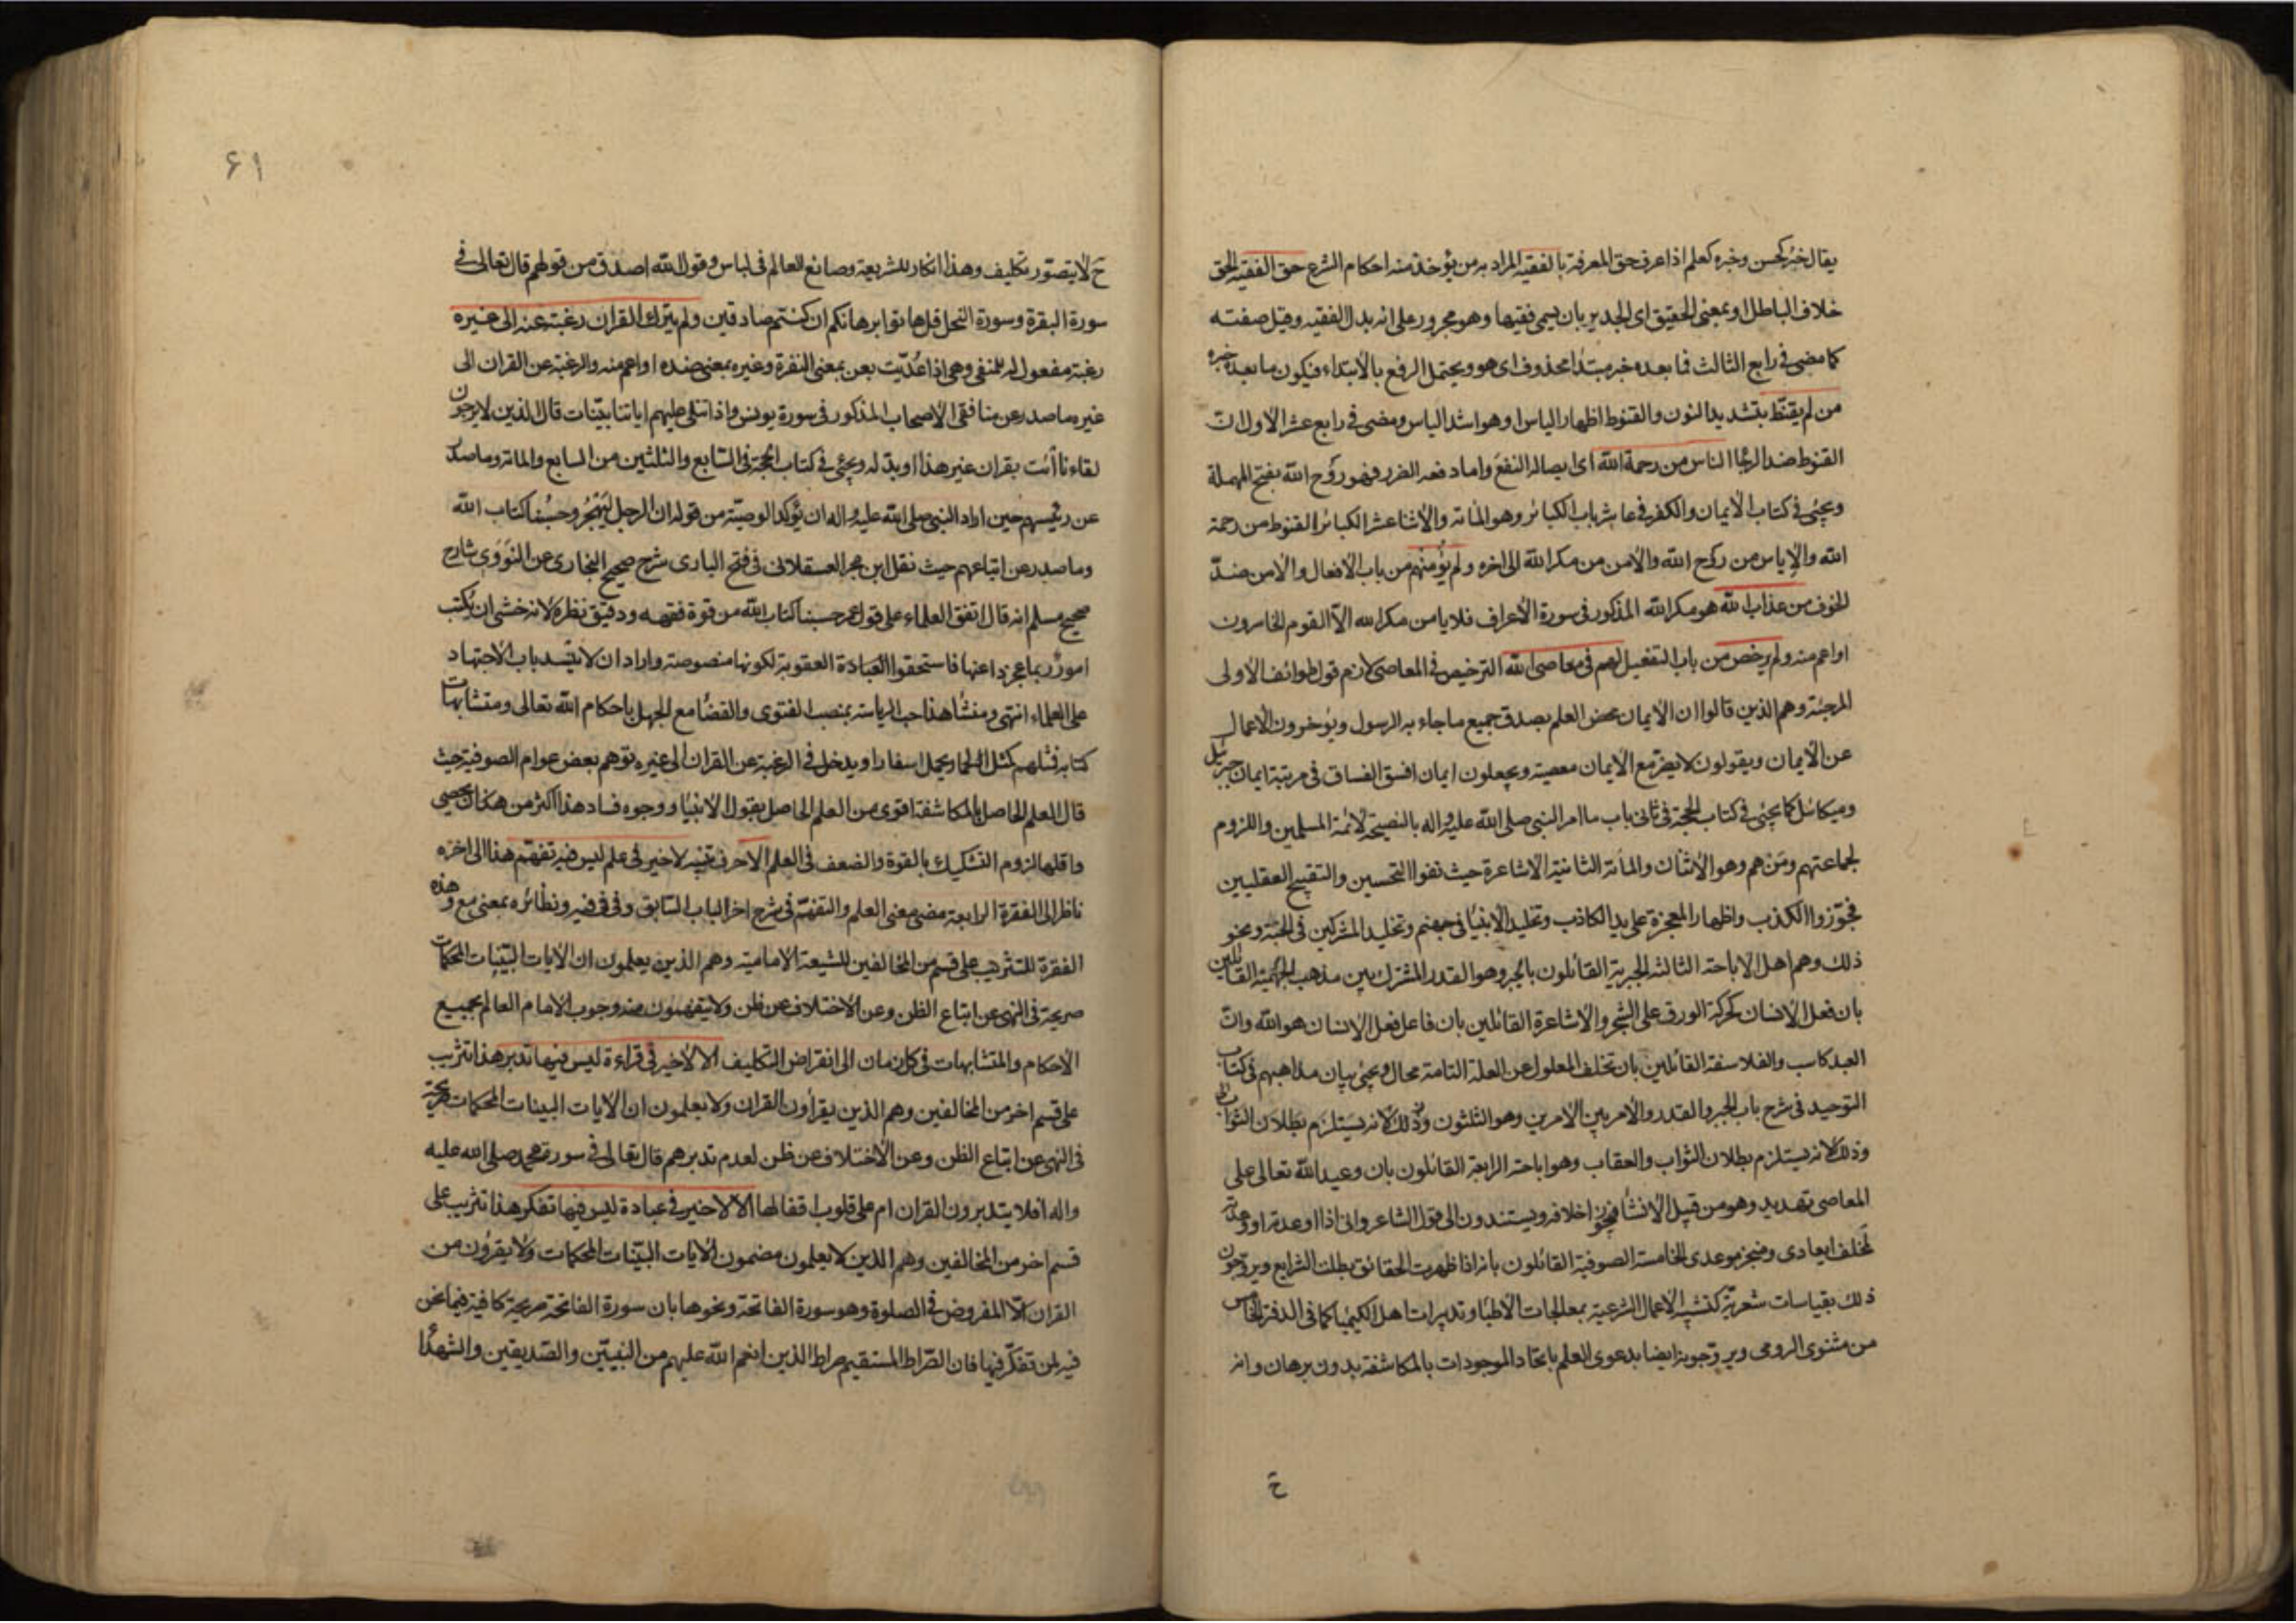 يقال خبر كحسن وخبره كعلم اذا عرف حق المعرفة بالفقيه المراد به من يؤخذ منه احكام الشرع حق الفقيه الحق
خلاف الباطل او بمعنى الحقيق اى الجدير بان يسمى فقيها وهو مجرور على انه بدل الفقيه وقيل صفته
كما مضى في رابع الثالث فما بعده خبر مبتدأ محذوف اى هو ويحتمل الرفع بالابتداء فيكون ما بعده خبره
من لم يقنّط بتشديد النون والقنوط اظهار الياس او هو اشد الياس ومضى في رابع عشر الاول ان
القنوط ضد الرجا الناس من رحمة الله اى ايصاله النفع واما دفعه الضرر فهو رَوح الله بفتح المهملة
ويجئ في كتاب الايمان والكفر في عاشر باب الكبائر وهو المائة والاثنا عشر الكبائر القنوط من رحمة
الله والاياس من روح الله والامن من مكر الله الى اخره ولم يؤمنهم من باب الافعال والامن ضدّ
الخوف من عذاب الله هو مكر الله المذكور في سورة الاعراف فلا يامن مكر الله الا القوم الخاسرون
او اعم منه ولم يرخص من باب التفعيل لهم في معاصى الله الترخيص في المعاصى لازم قول طوائف الاولى
المرجئة وهم الذين قالوا ان الايمان محض العلم بصدق جميع ما جاء به الرسول ويؤخرون الاعمال
عن الايمان ويقولون لا يضر مع الايمان معصية ويجعلون ايمان افسق الفساق في مرتبة ايمان جبرئيل
وميكائل كما يجئ في كتاب الحجة في ثاني باب ما امر النبي صلى الله عليه واله بالنصيحة لائمة المسلمين واللزوم
لجماعتهم ومَن هم وهو الاثنان والمائة الثانية الاشاعرة حيث نفوا التحسين والتقبيح العقليين
فجوّزوا الكذب واظهار المعجزة على يد الكاذب وتخليد الانبياء في جهنم وتخليد المشركين في الجنة ونحو
ذلك وهم اهل الاباحة الثالثة الجبرية القائلون بالجبر وهو القدر المشترك بين مذهب الجهمية القائلين
بان فعل الانسان كحركة الورق على الشجر والاشاعرة القائلين بان فاعل فعل الانسان هو الله وان
العبد كاسب والفلاسفة القائلين بان تخلف المعلول عن العلة التامة محال ويجئ بيان مذاهبهم في كتاب
التوحيد في شرح باب الجبر والقدر والامر بين الامرين وهو الثلثون وذلك لانه يستلزم بطلان الثواب
وذلك لانه يستلزم بطلان الثواب والعقاب وهو اباحة الرابعة القائلون بان وعيد الله تعالى على
المعاصى تهديد وهو من قبيل الانشاء فيجوز اخلافه ويستندون الى قول الشاعر وانى اذا اوعدته او وعدته
لمخلف ايعادى ومنجز موعدى الخامسة الصوفية القائلون بانه اذا ظهرت الحقائق بطلت الشرايع ويروّجون
ذلك بقياسات شعرية كتشبيه الاعمال الشرعية بمعالجات الاطباء وتدبيرات اهل الكيميا كما في الدفتر الخامس
من مثنوى الرومى ويروّجونه ايضا بدعوى العلم باتحاد الموجودات بالمكاشفة بدون برهان وانه
ح
٦١
ح لا يتصوّر تكليف وهذا انكار للشريعة وصانع للعالم في لباس وقول الله اصدق من قولهم قال تعالى في
سورة البقرة وسورة النمل قل هاتوا برهانكم ان كنتم صادقين ولم يترك القران رغبة عنه الى غيره
رغبة مفعول له للمنفى وهى اذا عدّيت بعن بمعنى النفرة وغيره بمعنى ضده او اعم منه والرغبة عن القران الى
غيره ما صدر عن منافقى الاصحاب المذكور في سورة يونس واذا تتلى عليهم اياتنا بيّنات قال الذين لا يرجون
لقاءنا ائت بقران غير هذا او بدّله ويجئ في كتاب الحجة في السابع والثلثين من السابع والمائة وما صدر
عن رئيسهم حين اراد النبي صلى الله عليه واله ان يؤكد الوصية من قوله ان الرجل ليهجر وحسبنا كتاب الله
وما صدر عن اتباعهم حيث نقل ابن حجر العسقلانى في فتح البارى شرح صحيح البخارى عن النووى شارح
صحيح مسلم انه قال اتفق العلماء على قول عمر حسبنا كتاب الله من قوة فقهه ودقيق نظره لانه خشى ان يكتب
امور ربما عجزوا عنها فاستحقوا العقوبة لكونها منصوصة واراد ان لا ينسد باب الاجتهاد
على العلماء انتهى ومنشأ هذا حب الرياسة بمنصب الفتوى والقضاء مع الجهل باحكام الله تعالى ومتشابهات
كتابه فمثلهم كمثل الحمار يحمل اسفارا ويدخل في الرغبة عن القران الى غيره توهم بعض عوام الصوفية حيث
قال العلم الحاصل بالمكاشفة اقوى من العلم الحاصل بقول الانبياء ووجوه فساد هذا اكثر من ان يحصى
واقلها لزوم التشكيك بالقوة والضعف في العلم الا حرف تنبيه لا خير في علم ليس فيه تفهّم هذا الى اخره
ناظر الى الفقرة الرابعة مضى معنى العلم والتفهّم في شرح اخر الباب السابق وفى في فيه ونظائره بمعنى مع وهذه
الفقرة للتثريب على قسم من المخالفين للشيعة الامامية وهم الذين يعلمون ان الايات البيّنات المحكمات
صريحة في النهى عن اتباع الظن وعن الاختلاف عن ظن ولا يتفهمون منه وجوب الامام العالم بجميع
الاحكام والمتشابهات في كل زمان الى انقراض التكليف الا لا خير في قراءة ليس فيها تدبر هذا تثريب
على قسم اخر من المخالفين وهم الذين يقرأون القران ولا يعلمون ان الايات البينات المحكمات صريحة
في النهى عن اتباع الظن وعن الاختلاف عن ظن لعدم تدبرهم قال تعالى في سورة محمد صلى الله عليه
واله افلا يتدبرون القران ام على قلوب اقفالها الا لا خير في عبادة ليس فيها تفكر هذا تثريب على
قسم اخر من المخالفين وهم الذين لا يعلمون مضمون الايات البيّنات المحكمات ولا يقرؤن من
القران الا المفروض في الصلوة وهو سورة الفاتحة ونحوها بان سورة الفاتحة صريحة كافية فيما نحن
فيه لمن تفكّر فيها فان الصّراط المستقيم صراط الذين انعم الله عليهم من النبيّين والصّديقين والشهداء